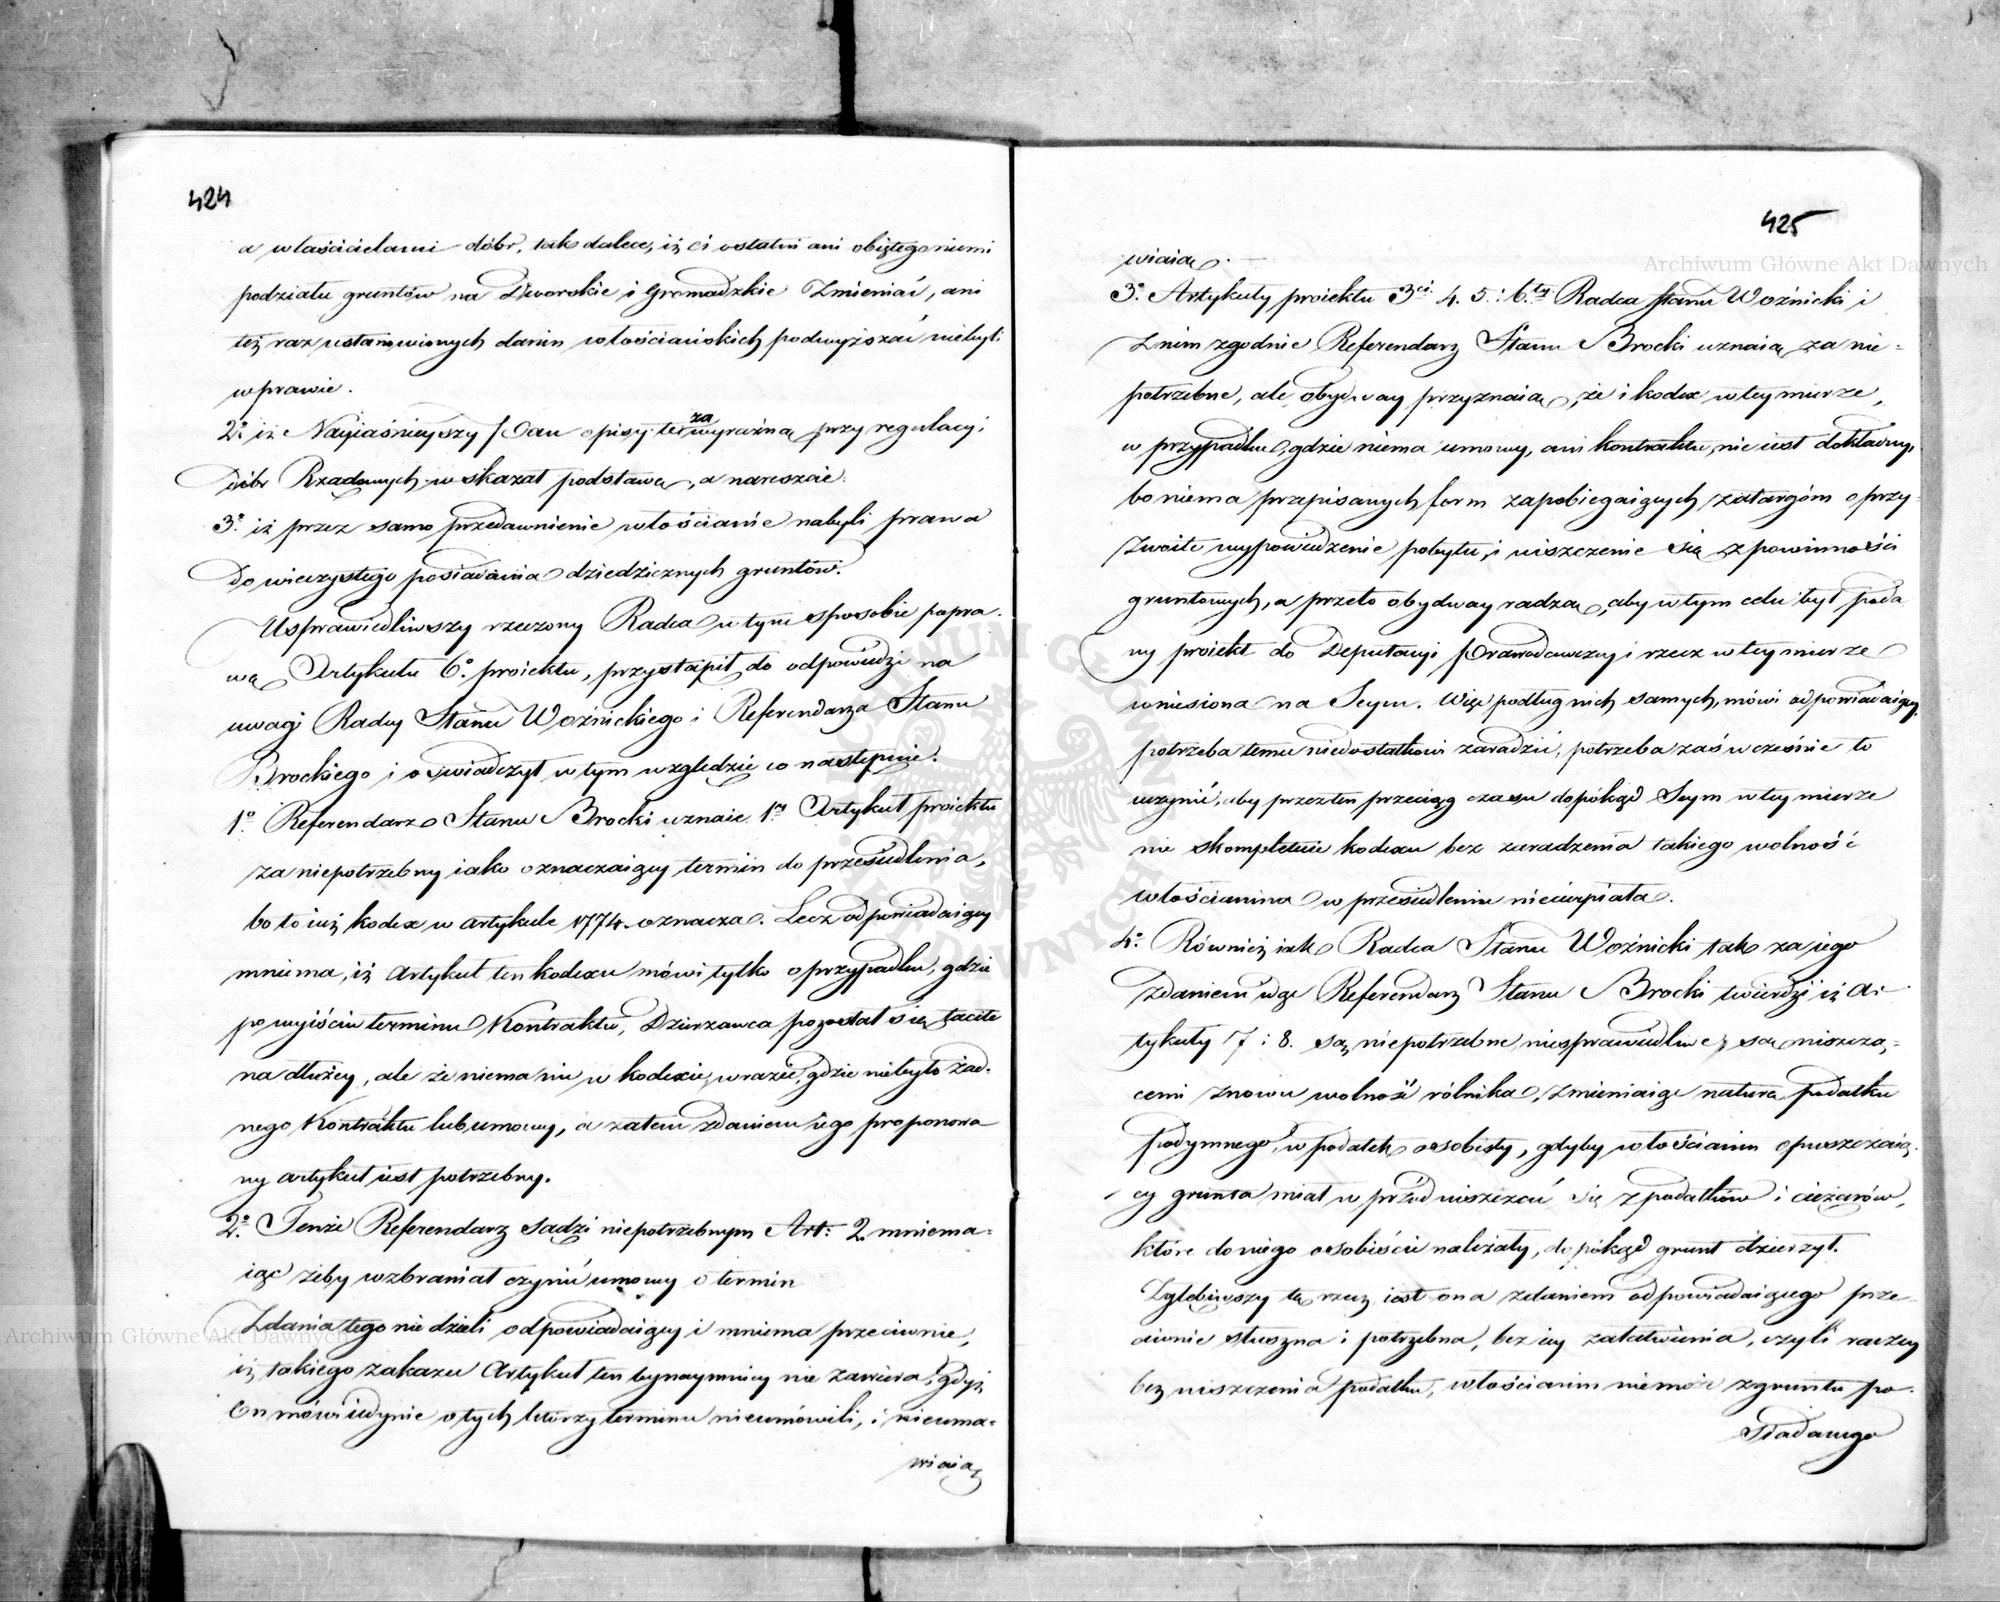 424
a właścicielami dóbr, tak dalece, iż ci ostatni ani obiętego niemi
podziału gruntów na Dworskie i Gromadzkie zmieniać, ani
też raz ustanowionych danin włościańskich podwyższać niebyli
w prawie.
2º iż Nayiaśnieyszy Pan opisy te za wyraźną przy regulacyi
dóbr Rządowych wskazał podstawę, a nareszcie.
3º iż przez samo przedawnienie włościanie nabyli prawa
do wieczystego posiadania dziedzicznych gruntów.
Usprawiedliwszy rzeczony Radca w tym sposobie popra-
wę Artykułu 6º proiektu, przystąpił do odpowiedzi na
uwagi Radcy Stanu Woźnickiego i Referendarza Stanu
Brockiego i oświadczył w tym względzie co następuie.
1º Referendarz Stanu Brocki uznaie 1y Artykuł proiektu
za niepotrzebny iako oznaczaiący termin do przesiedlenia,
bo to iuż kodex w artykule 1774 oznacza. Lecz odpowiadaiący
mniema, iż Artykuł ten kodexu mówi tylko o przypadku, gdzie
po wyiściu terminu Kontraktu, Dzierżawca pozostał się tacite
na dłużey, ale że niema nic w kodexie, w razie, gdzie niebyło żad-
nego Kontraktu lub umowy, a zatem zdaniem iego proponowa
ny artykuł iest potrzebny.
2º Tenże Referendarz sądzi niepotrzebnym Art: 2. mniema-
iąc żeby wzbraniał czynić umowy o termin
Zdania tego nie dzieli odpowiadaiący i mniema przeciwnie,
iż takiego zakazu Artykuł ten bynaymniey nie zawiera, gdyż
On mówi iedynie o tych którzy terminu nieumówili, i nieuma-
wiaią
425
wiaią.
3º Artykuły proiektu 3ci 4. 5. i 6.ty Radca Stanu Woźnicki i
z nim zgodnie Referendarz Stanu Brocki uznaią za nie-
potrzebne, ale obydway przyznaią, że i kodex w tey mierze,
w przypadku, gdzie niema umowy, ani kontraktu, nie iest dokładny,
bo niema przepisanych form zapobiegaiących zatargóm o przy-
zwoite wypowiedzenie pobytu, i uiszczenie się z powinności
gruntowych, a przeto obydway radzą, aby w tym celu był poda
ny proiekt do Deputacyi Prawodawczey i rzecz w tey mierze
wniesiona na Seym. Więc podług nich samych, mówi odpowiadaiący,
potrzeba temu niedostatkowi zaradzić, potrzeba zaś wcześnie to
uczynić, aby przez ten przeciąg czasu dopókąd Seym w tey mierze
nie skompletuie kodexu bez zaradzenia takiego wolność
włościanina w przesiedleniu niecierpiała.
4º Również iak Radca Stanu Woźnicki tak za iego
zdaniem idąc Referendarz Stanu Brocki twierdzi iż Ar-
tykuły 7 i 8. są niepotrzebne, niesprawiedliwe, są niszczą-
cemi znowu wolność rólnika, zmieniaiąc naturę podatku
podymnego, w podatek osobisty, gdyby włościanin opuszczaią-
cy grunta miał wprzód uiszczać się z podatków i ciężarów,
które do niego osobiście należały, dopókąd grunt dzierżył.
Zgłębiwszy tę rzecz iest ona zdaniem odpowiadaiącego prze
ciwnie słuszna i potrzebna, bez iey załatwienia, czyli raczey
bez uiszczenia podatku, włościanin niemoże z gruntu po-
siadanego
Archiwum Główne Akt Dawnych
Archiwum Główne Akt Dawnych
ARCHIWUM GŁÓWNE AKT DAWNYCH